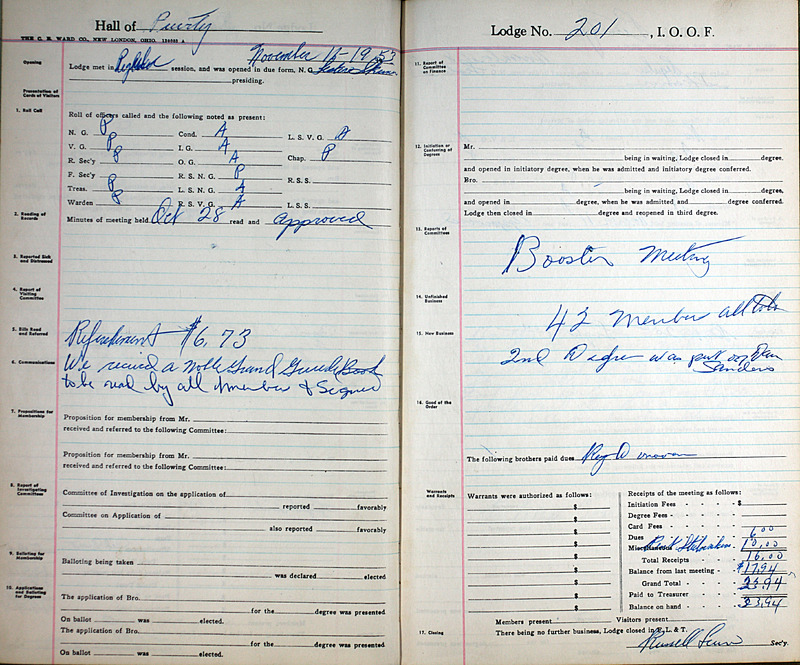 Hall of Purity
THE C. E. WARD CO., NEW LONDON, OHIO.
November 12-1953
Opening
Lodge met in Regular session, and was opened in due form, N. G.
presiding.
Presentation of Cards of Visitors
1. Roll Call
Roll of officers called and the following noted as present:
N. G. P Cond. A L. S. V. G. A
V. G. P I. G. A
R. Sec'y P O. G. A Chap. P
F. Sec'y P R. S. N. G. P R. S. S.
Treas. P L. S. N. G. A
Warden P R. S. V. G. A L. S. S.
2. Reading of Records
Minutes of meeting held Oct 28 read and approved
3. Reported Sick and Distressed
4. Report of Visiting Committee
5. Bills Read and Referred
Refreshment $6.73
6. Communications
We recived a Noble Grand Guide Book
to be read by all member & Signed
7. Propositions for Membership
Proposition for membership from Mr.
received and referred to the following Committee:
Proposition for membership from Mr.
received and referred to the following Committee:
8. Report of Investigating Committees
Committee of Investigation on the application of
reported favorably
Committee on Application of
also reported favorably
9. Balloting for Membership
Balloting being taken
was declared elected
10. Applications and Balloting for Degrees
The application of Bro.
for the degree was presented
On ballot was elected.
The application of Bro.
for the degree was presented
On ballot was elected.
Lodge No. 201, I. O. O. F.
11. Report of Committee on Finance
12. Initiation or Conferring of Degrees
Mr.
being in waiting, Lodge closed in degree,
and opened in initiatory degree, when he was admitted and initiatory degree conferred.
Bro.
being in waiting, Lodge closed in degree,
and opened in degree, when he was admitted and degree conferred.
Lodge then closed in degree and reopened in third degree.
13. Reports of Committees
Booster Meeting
14. Unfinished Business
42 member all
15. New Business
2nd Degree was put on
Sanders
16. Good of the Order
The following brothers paid dues Ray Donovan
Warrants and Receipts
Warrants were authorized as follows:
$
$
$
$
$
$
$
$
$
Receipts of the meeting as follows:
Initiation Fees - - - - $
Degree Fees - - - -
Card Fees - - - -
Dues 6.00
Miscellaneous 10.00
Total Receipts - - 16.00
Balance from last meeting - $17.94
Grand Total - -
Paid to Treasurer - -
Balance on hand - - 33.94
Members present Visitors present
17. Closing
There being no further business, Lodge closed in F., L. & T.
Russell Sec'y.